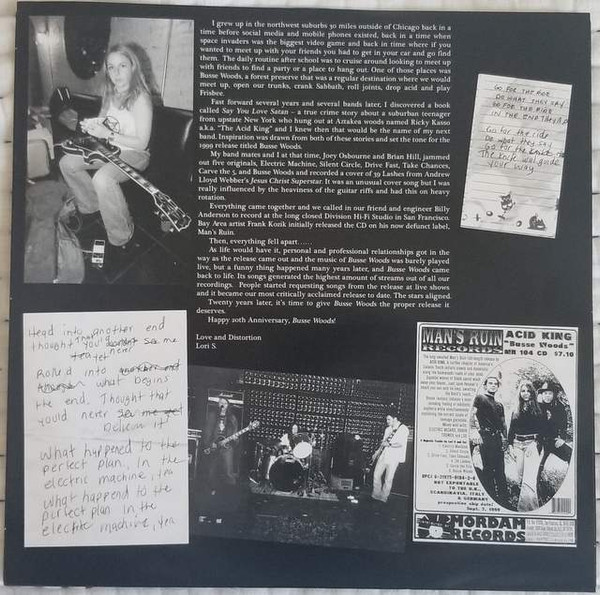 I grew up in the northwest suburbs 30 miles outside of Chicago back in a
time before social media and mobile phones existed, back in a time when
space invaders was the biggest video game and back in time where if you
wanted to meet up with your friends you had to get in your car and go find
them. The daily routine after school was to cruise around looking to meet up
with friends to find a party or a place to hang out. One of those places was
Busse Woods, a forest preserve that was a regular destination where we would
meet up, open our trunks, crank Sabbath, roll joints, drop acid and play
Frisbee.
Fast forward several years and several bands later, I discovered a book
called Say You Love Satan – a true crime story about a suburban teenager
from upstate New York who hung out at Aztakea woods named Ricky Kasso
a.k.a. "The Acid King" and I knew then that would be the name of my next
band. Inspiration was drawn from both of these stories and set the tone for the
1999 release titled Busse Woods.
My band mates and I at that time, Joey Osbourne and Brian Hill, jammed
out five originals, Electric Machine, Silent Circle, Drive Fast, Take Chances,
Carve the 5, and Busse Woods and recorded a cover of 39 Lashes from Andrew
Lloyd Webber's Jesus Christ Superstar. It was an unusual cover song but I was
really influenced by the heaviness of the guitar riffs and had this on heavy
rotation.
Everything came together and we called in our friend and engineer Billy
Anderson to record at the long closed Division Hi-Fi Studio in San Francisco.
Bay Area artist Frank Kozik initially released the CD on his now defunct label,
Man's Ruin.
Then, everything fell apart.....
As life would have it, personal and professional relationships got in the
way as the release came out and the music of Busse Woods was barely played
live, but a funny thing happened many years later, and Busse Woods came
back to life. Its songs generated the highest amount of streams out of all our
recordings. People started requesting songs from the release at live shows
and it became our most critically acclaimed release to date. The stars aligned.
Twenty years later, it's time to give Busse Woods the proper release it
deserves.
Happy 20th Anniversary, Busse Woods!
Love and Distortion
Lori S.
Go for the ride
Do what they say
Go for the ride
in the end they'll
Go for the ride
Do what they say
Go for the
The knife will guide
your way
Head into another end
thought that you'd never see me
yet
Rolled into
what begins
the end. Thought that
you'd never
believe it!
What happened to the
perfect plan, in the
electric machine, yea
what happend to the
perfect plan in the
electric machine, yea
MAN'S RUIN
RECORDS
ACID KING
"Busse Woods"
MR 104 CD $7.10
NOT EXPORTABLE
TO THE U.K.,
SCANDINAVIA, ITALY,
& GERMANY
Sept. 7, 1999
MORDAM
RECORDS